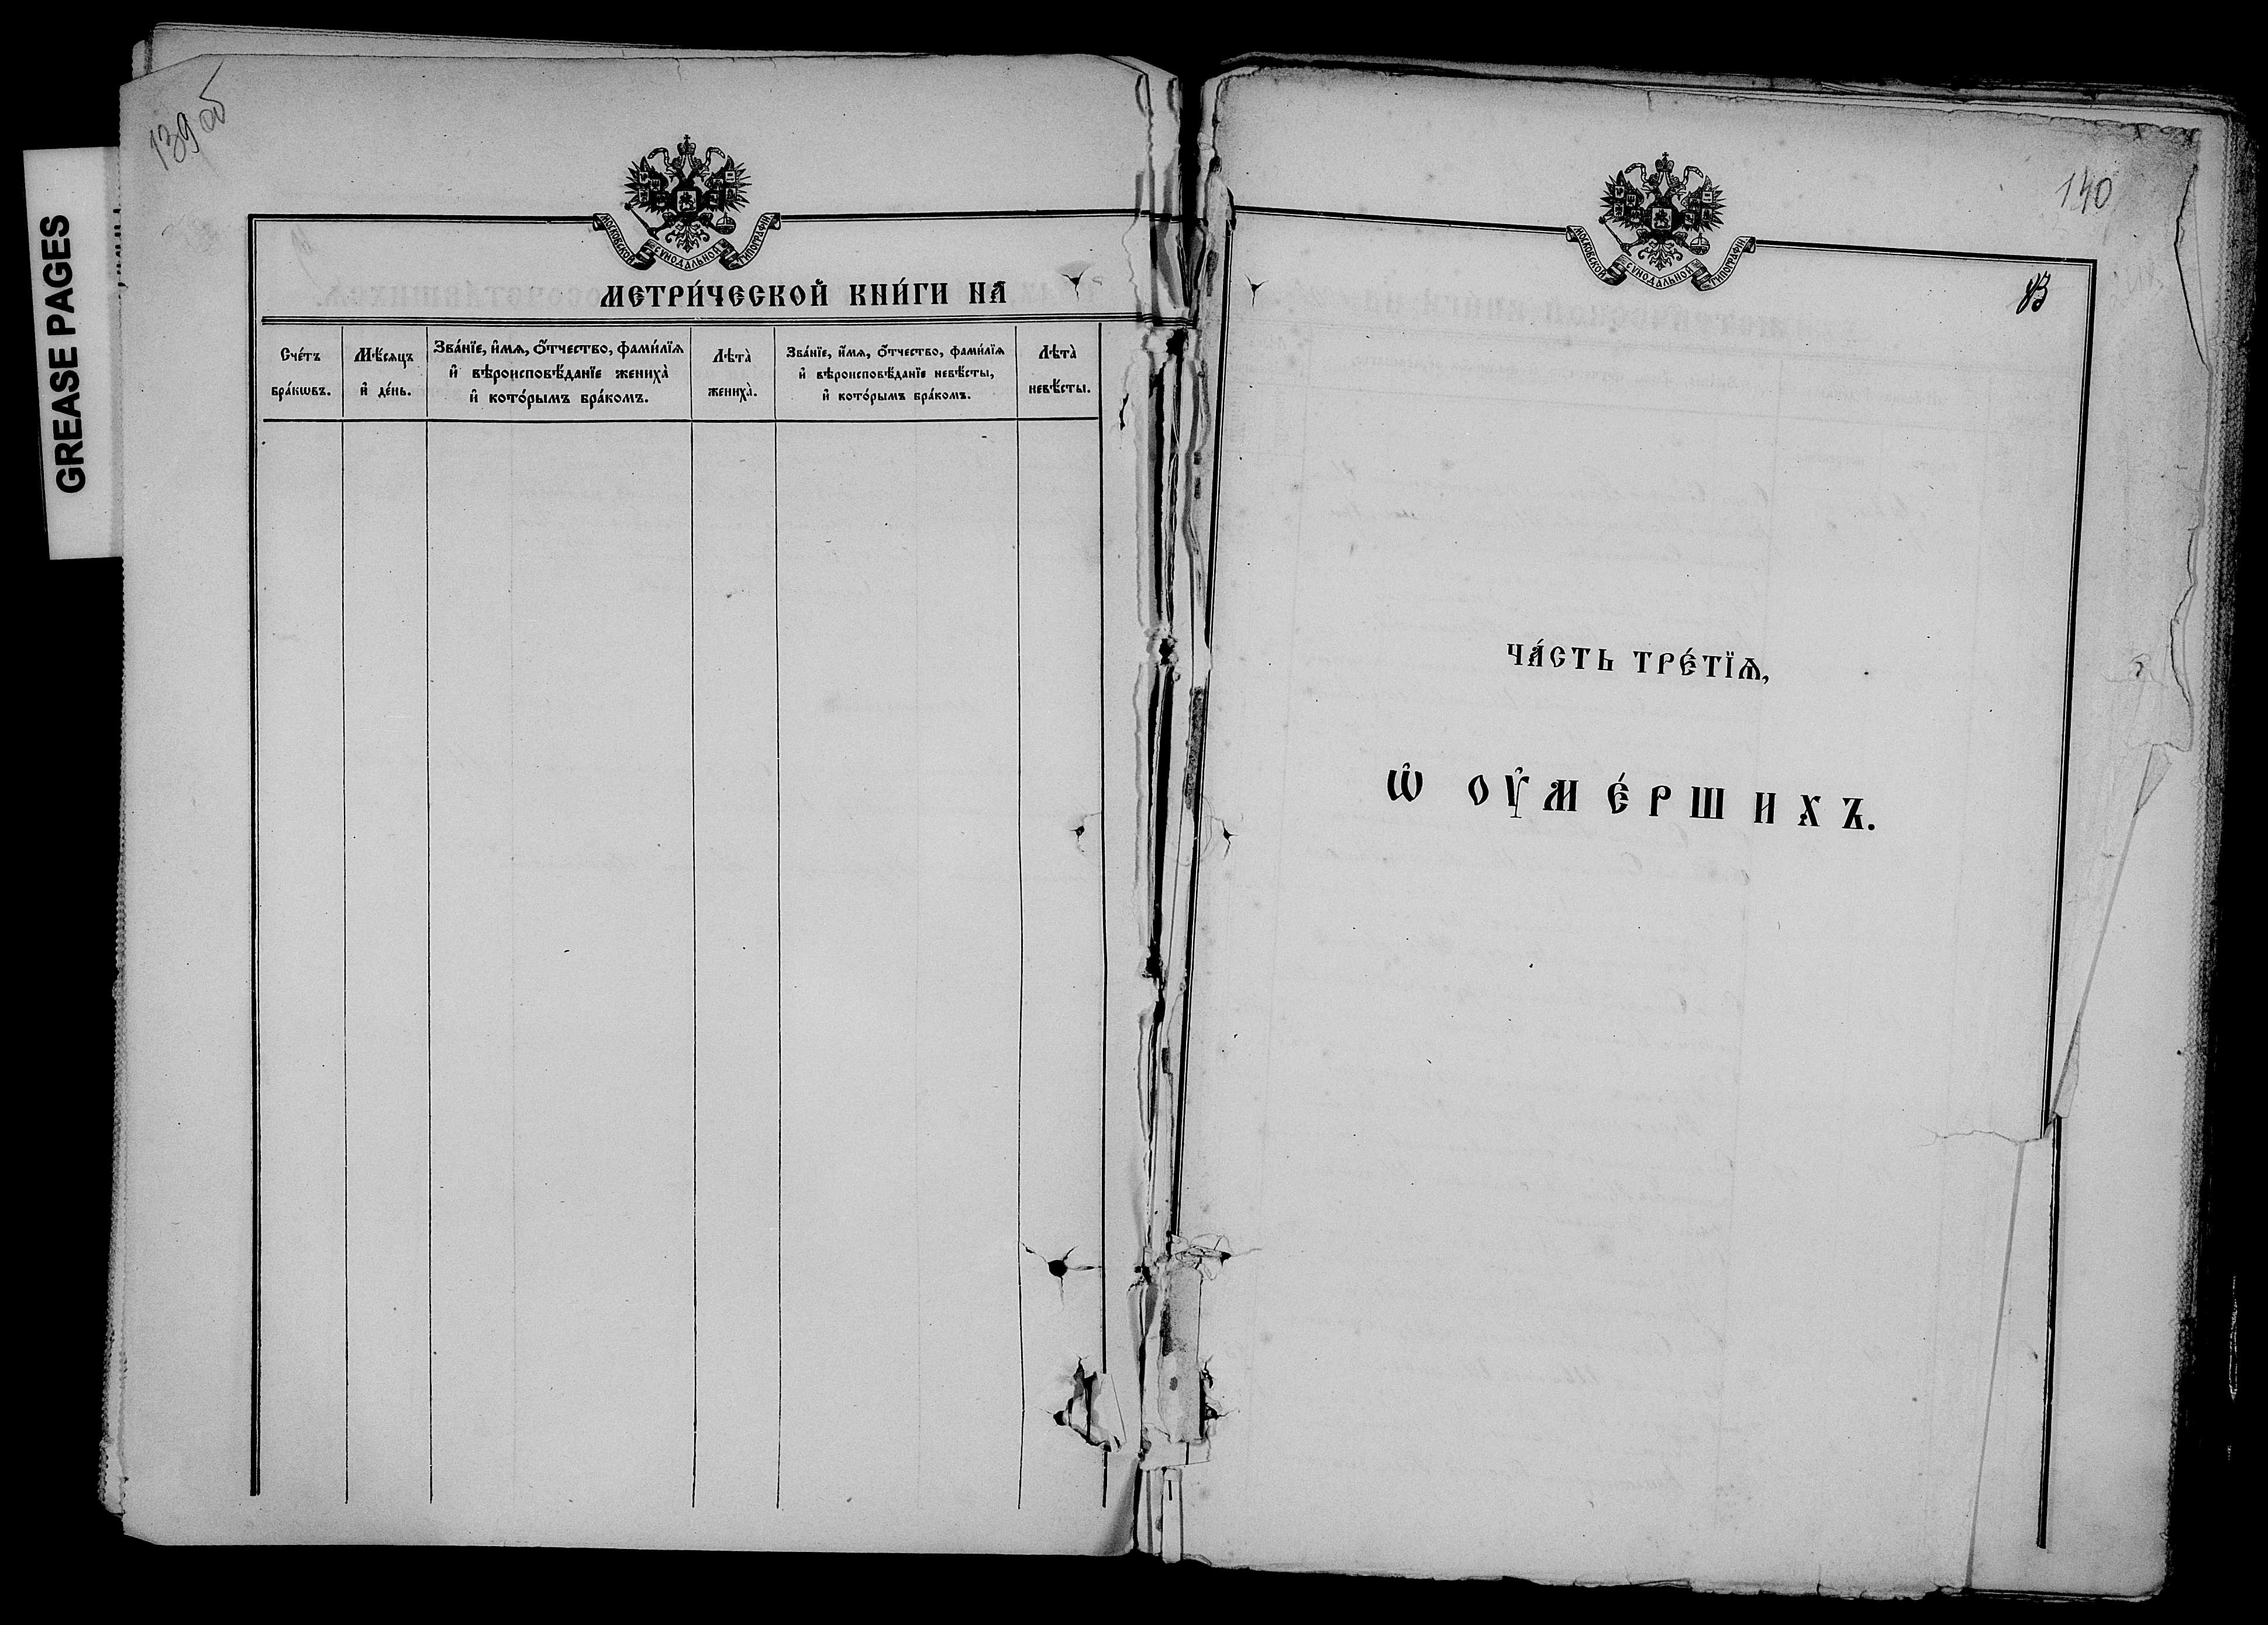 GREASE PAGES
139 об
МОСКОВСКОЙ СѴНОДАЛЬНОЙ ТИПОГРАФІИ
МЕТРИ́ЧЕСКОЙ КНИ́ГИ НА
Сче́тъ
бра́кѡвъ.
Мѣ́сяцъ
и҆ де́нь.
Зва́нїе, и҆́мѧ, ѻ҆́тчество, фами́лїѧ
и҆ вѣроисповѣ́данїе женихà
и҆ кото́рымъ бра́комъ.
Лѣтà
женихà.
Зва́нїе, и҆́мѧ, ѻ҆́тчество, фами́лїѧ
и҆ вѣроисповѣ́данїе невѣ́сты,
и҆ кото́рымъ бра́комъ.
Лѣтà
невѣ́сты.
140
МОСКОВСКОЙ СѴНОДАЛЬНОЙ ТИПОГРАФІИ
ЧА́СТЬ ТРЕ́ТЇѦ,
Ѡ҆ ОУ҆МЕ́РШИХЪ.